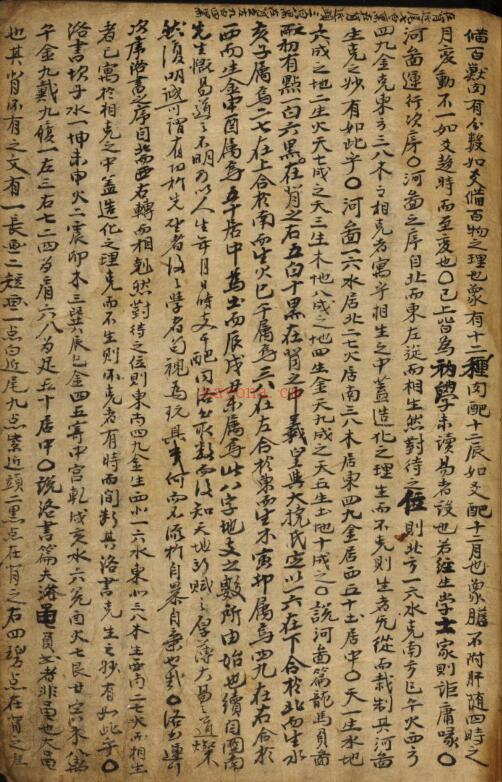 備百獸肉有分數如爻備百物之理也象有十二種肉配十二辰如爻配十二月也象膽不附肝隨四時之
月変動不一如爻趍時而至変也〇已上皆為初學未讀易者設也若經生學士家則詎庸喙〇
河啚運行次序〇河啚之序自北而東左旋而相生然對待之位則北方一六水克南方二七火西方
四九金克東方三八木之相克者寓乎相生之中蓋造化之理生而不克則生者先從而裁制其河啚
生克之妙有如此乎〇河啚一六水居北二七火居南三八木居東四九金居西五十土居中〇天一生水地
六成之地二生火天七成之天三生木地八成之地四生金天九成之天五生土地十成之〇說河啚篇龍馬負啚
初有點一白六黒在背之 五白十黒在背之 羲皇與大撓氏定以一六在下合於北而生水
亥子属焉二七在上合於南而生火巳午属焉三八在左合於東而生木寅卯属焉四九在右合於
西而生金申酉属焉五十居中為土而辰戌丑未属焉此八字地支之數所由始也續因
先生慨易道之不明 以人生年月日時支干配 取數而後知天地 賦之厚薄大易之道燦
然復明誠可謂有功於先 者 學者苟視為玩具 何而不 於自暴自棄也哉〇洛書運行
次序洛書之序自北而西右轉而相剋然對待之位則東南四九金生西北一六水東北三八木生西南二七火而相生
者已寓於相克之中蓋造化之理克而不生則 克者有時而間 其洛書克生之妙有如此乎〇
洛書坎子水一坤未申火二震卯木三巽辰巳金四五寄中宮乾戌亥水六兌 火七艮丑寅木八離
午金九戴九履一左三右七二四為肩六八為足五十居中〇說洛書篇夫 者非 也
也其背 有之文有一長画二短画一点白近尾九点紫近頭二黒点在背之右四碧点在背之左